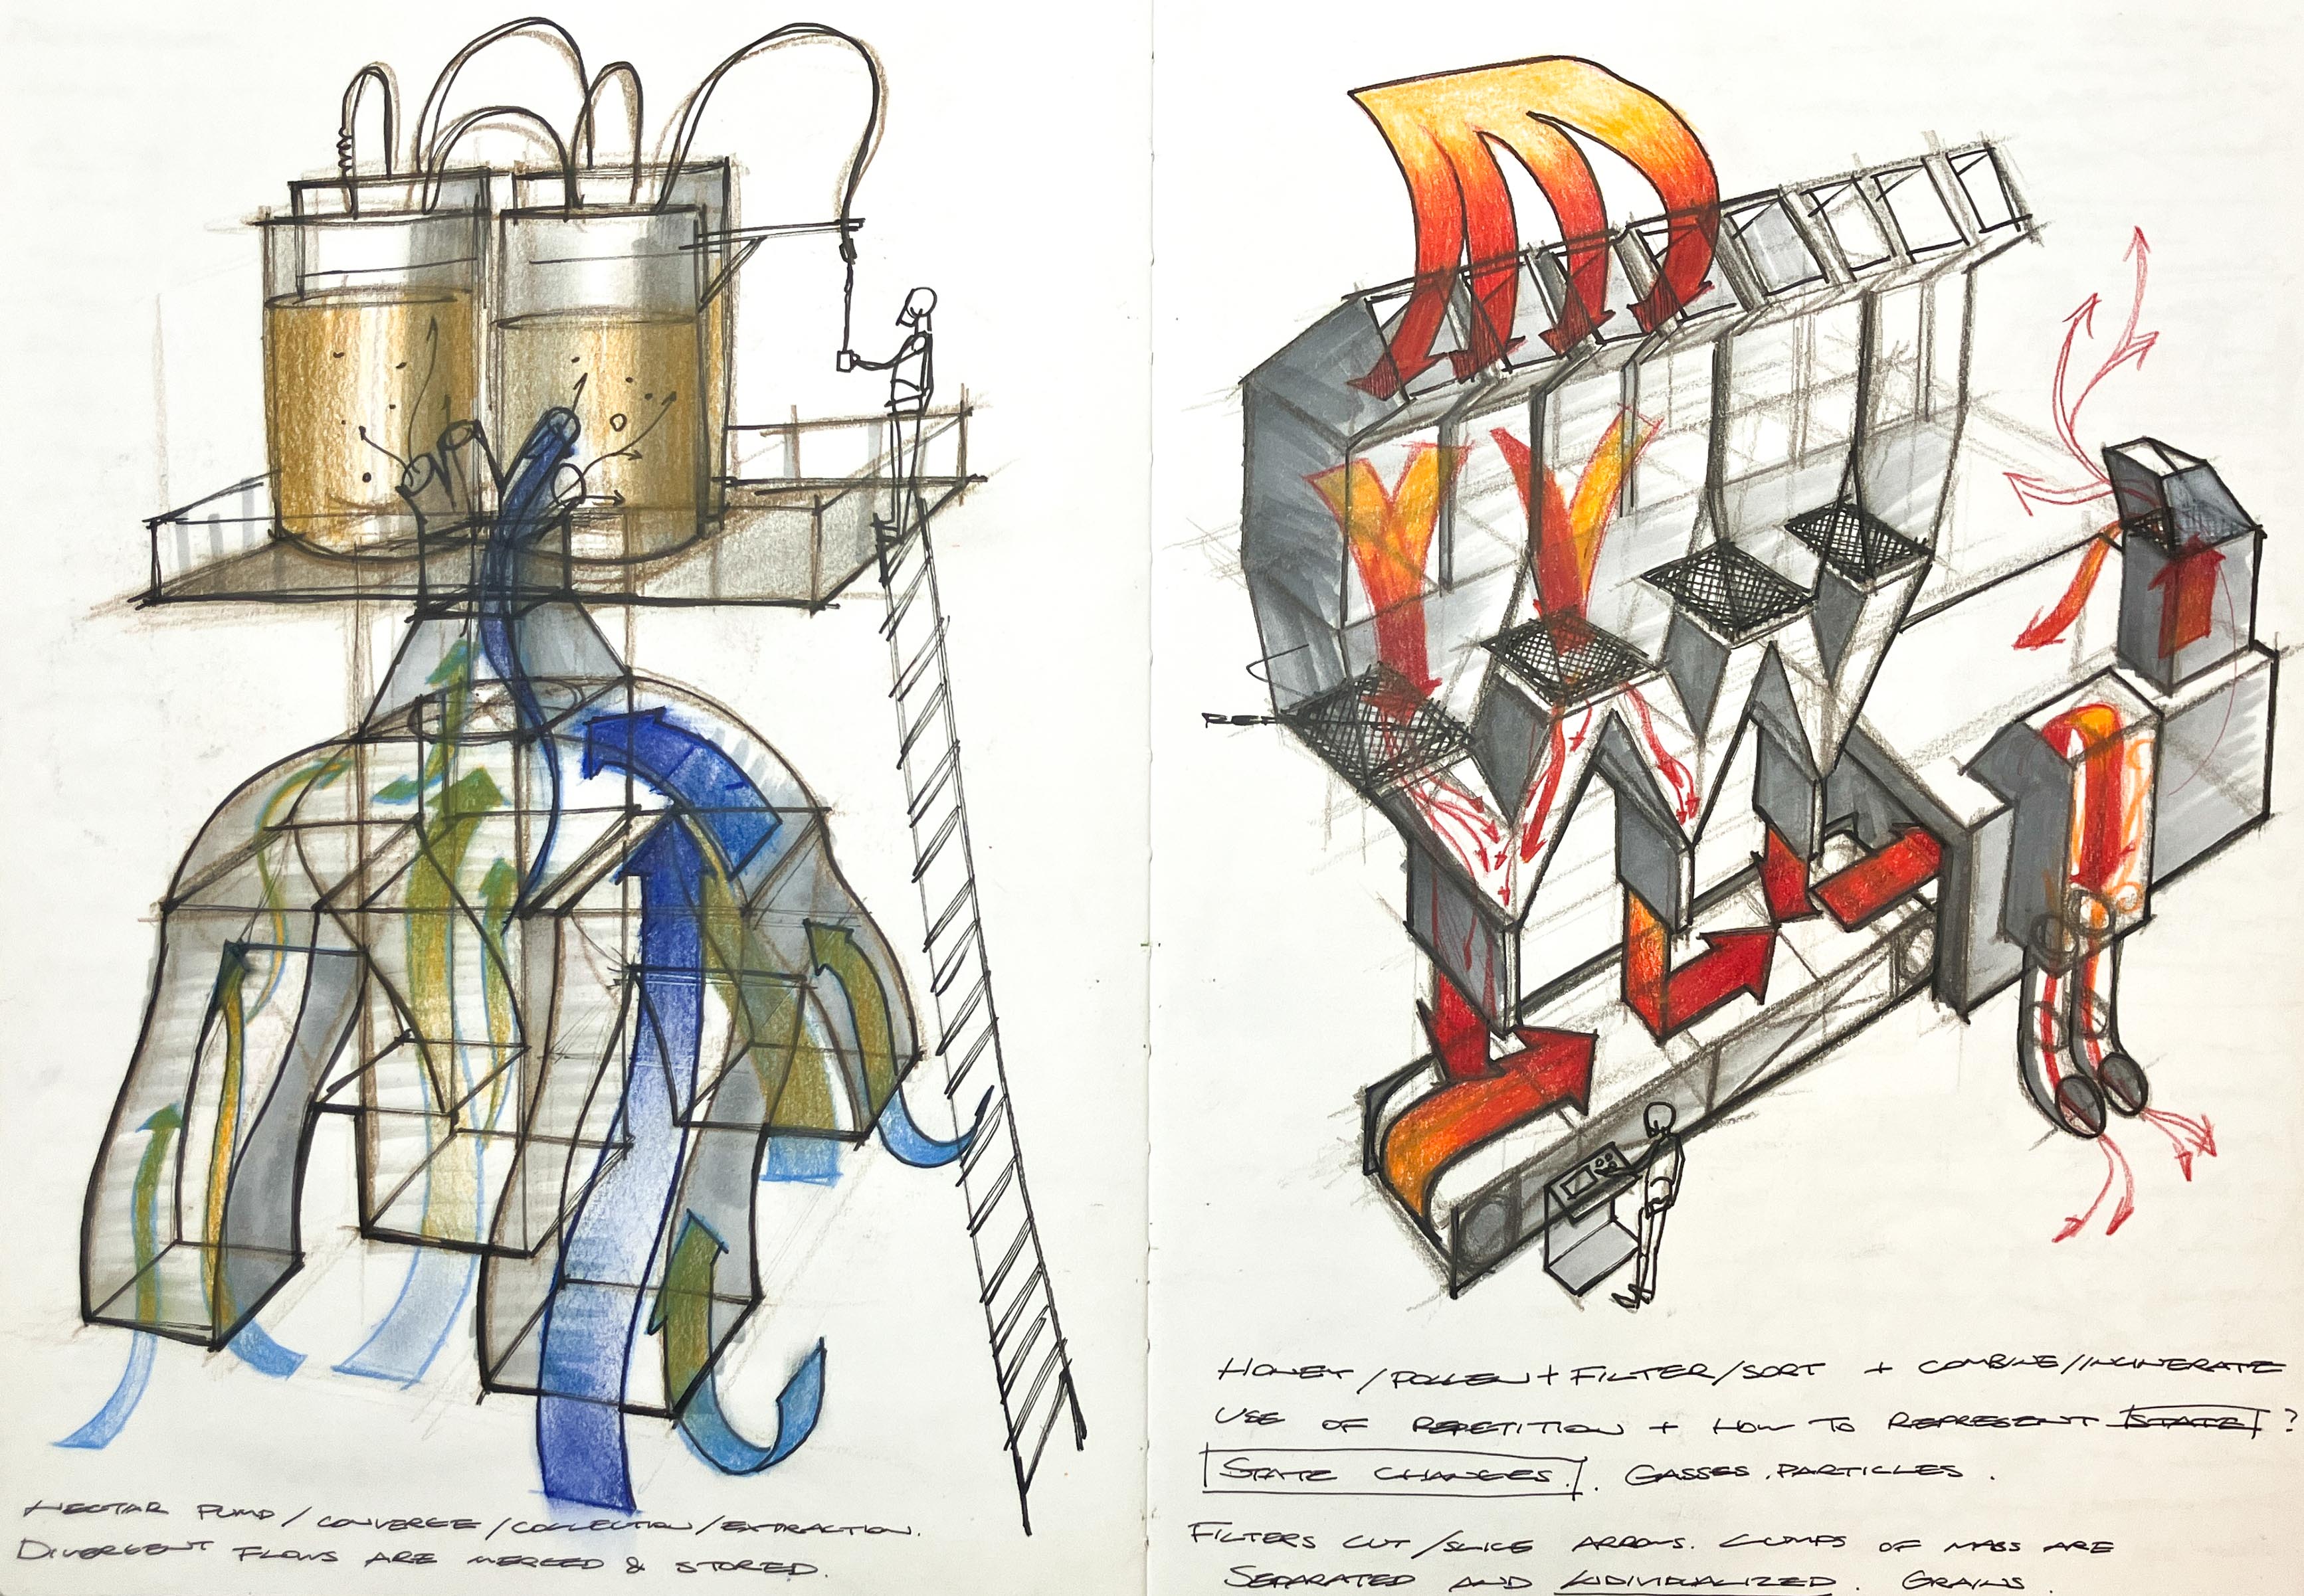 NECTAR PUMP / CONVERGE / COLLECTION / EXTRACTION.
DIVERGENT FLOWS ARE MERGED & STORED.
HONEY / POLLEN + FILTER / SORT + COMBINE / INCINERATE
USE OF REPETITION + HOW TO REPRESENT STATE ?
STATE CHANGES. GASSES. PARTICLES.
FILTERS CUT / SLICE ARROWS. LUMPS OF MASS ARE
SEPARATED AND INDIVIDUALIZED. GRAINS.